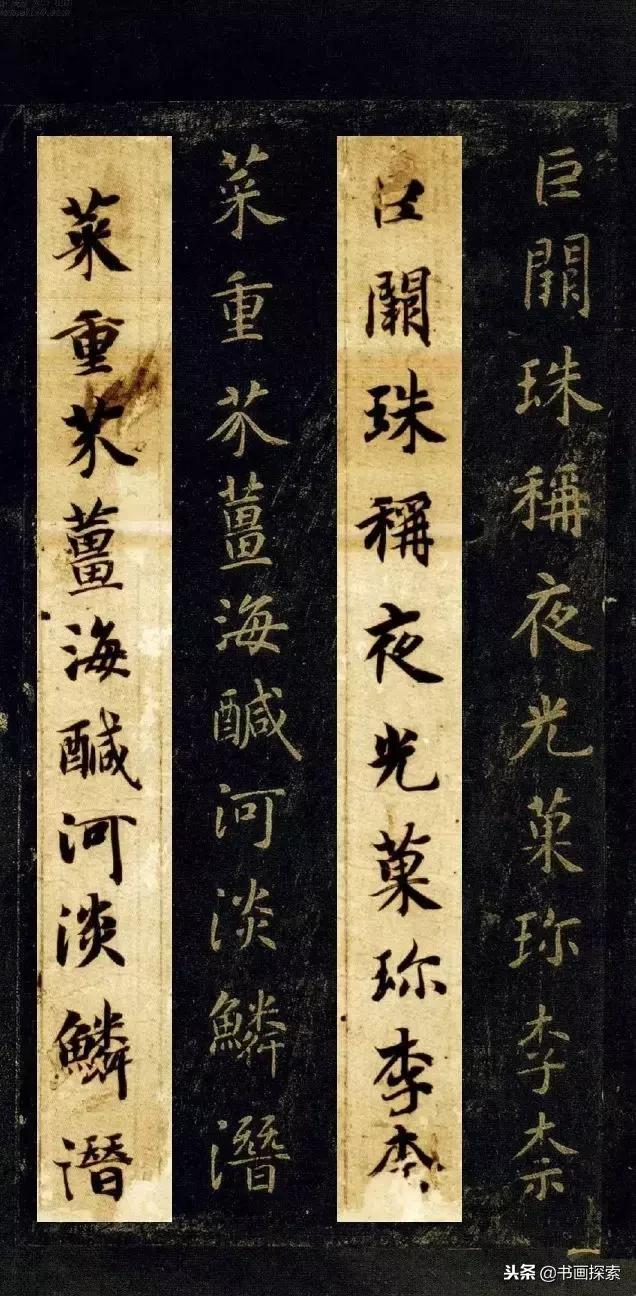 巨闕珠稱夜光菓珎李柰
巨闕珠稱夜光菓珎李柰
菜重芥薑海醎河淡鱗潛
菜重芥薑海醎河淡鱗潛
头条 @书画探索